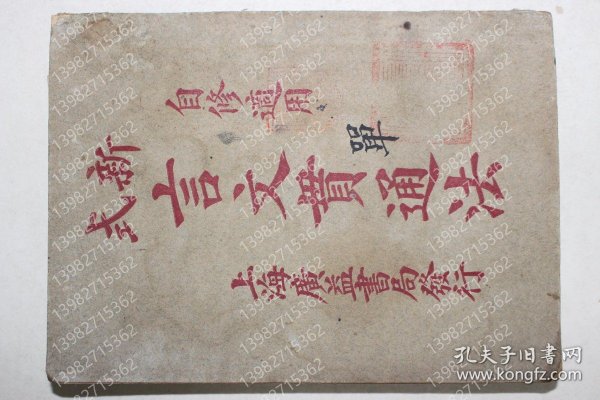 自修適用
單
新式
言文貫通法
上海廣益書局發行
13982715362
孔夫子旧书网
www.kongfz.com